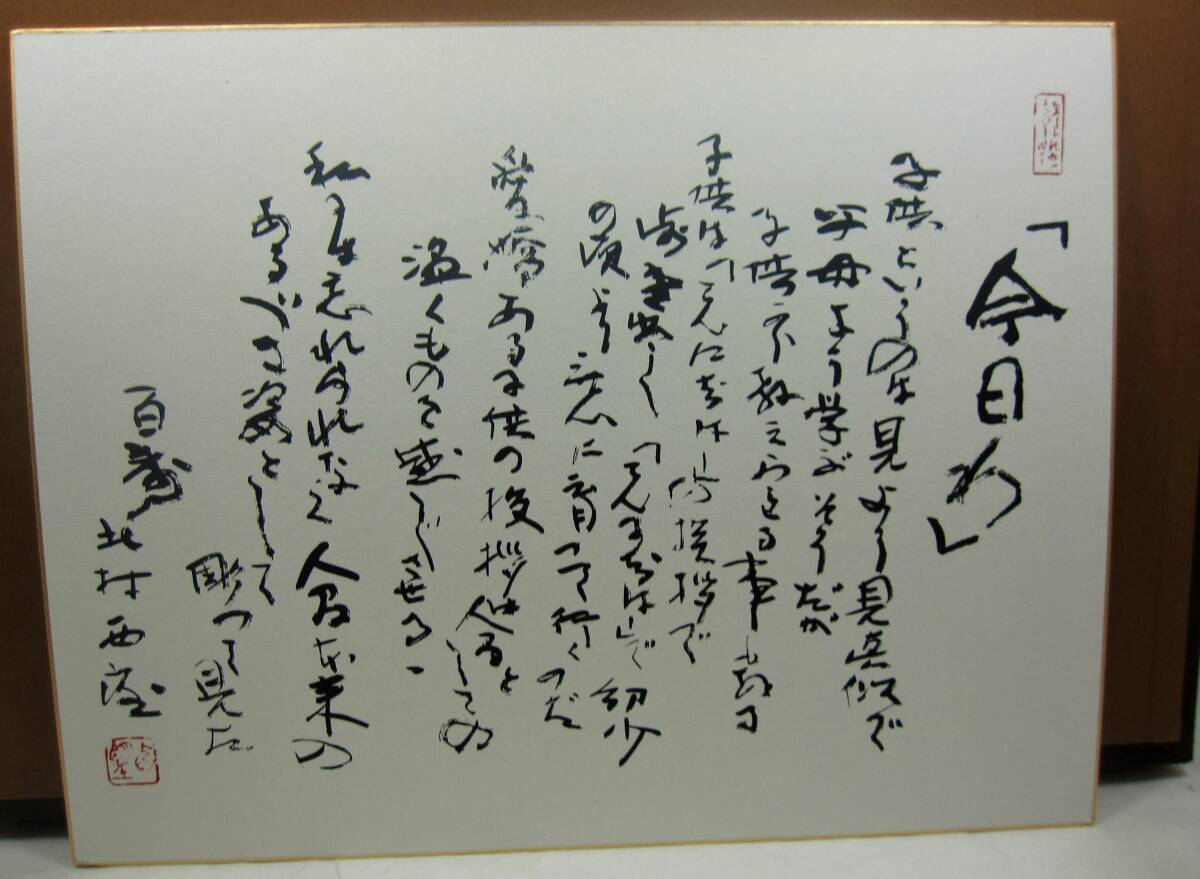 「今日わ」
子供というのは見よう見真似で
父母より学ぶそうだが
子供 教えらるる事もある
子供は「こんにちは」 挨拶で
「こんにちは」で 幼少
の頃より 心に育って行くのだ
愛嬌ある子供の挨拶は人間としての
温くものを感じさせる
私には忘れ れない人間本来の
あるべき姿として
彫って見た
百寿 北村西望